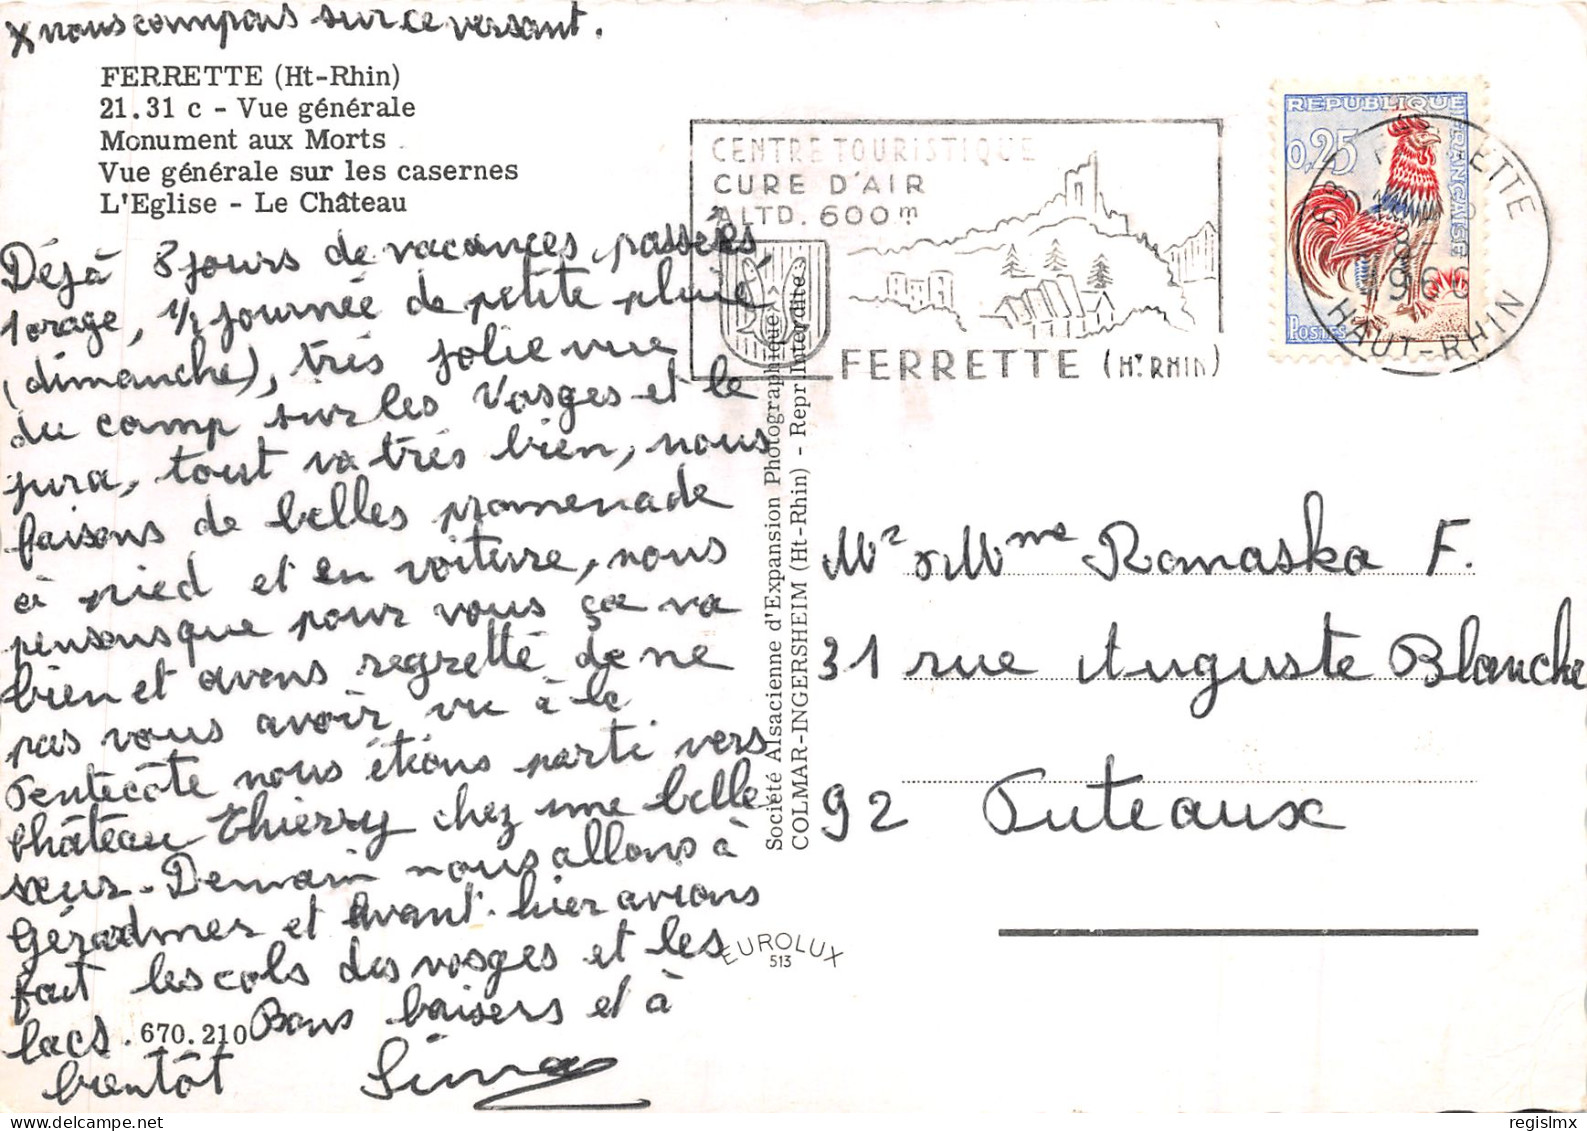 x nous campons sur ce versant.
FERRETTE (Ht-Rhin)
21.31 c - Vue générale
Monument aux Morts
Vue générale sur les casernes
L'Eglise - Le Château
Déjà 8 jours de vacances passées,
1 orage, 1/2 journée de petite pluie
(dimanche), très jolie vue
du camp sur les Vosges et le
jura, tout va très bien, nous
faisons de belles promenade
à pied et en voiture, nous
pensons que pour vous ça va
bien et avons regretté de ne
pas vous avoir vu à la
Pentecôte nous étions parti vers
Château Thierry chez une belle
sœur. Demain nous allons à
Gérardmer et avant-hier avions
fait les cols des vosges et les
lacs. Bons baisers et à
bientôt
670.210
Société Alsacienne d'Expansion Photographique
COLMAR-INGERSHEIM (Ht-Rhin) - Repr Interdite
EUROLUX
513
CENTRE TOURISTIQUE
CURE D'AIR
ALTD. 600m
FERRETTE (HT RHIN)
REPUBLIQUE
FRANÇAISE
0,25
POSTES
FERRETTE
HAUT-RHIN
Mr x Mme Romaska F.
31 rue Auguste Blanche
92 Puteaux
regislmx